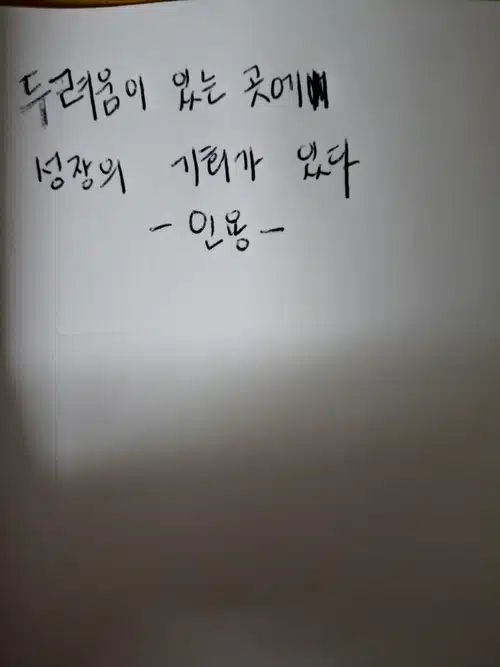 두려움이 있는 곳에
성장의 기회가 있다
- 인용 -